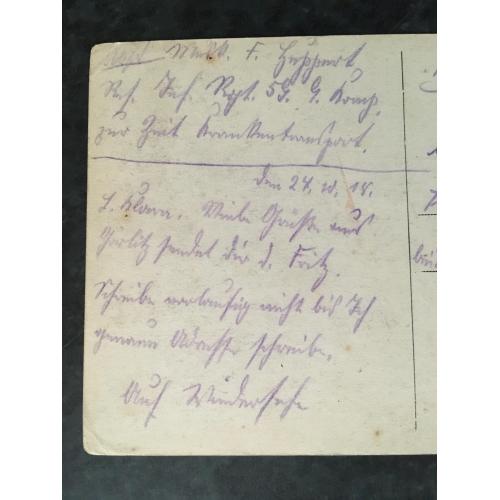 Absd. Musk. F. Huppert
Res. Inf. Rgt. 53. 9. Komp.
zur Zeit Krankentransport.
den 24. 10. 18.
L. Klara. Viele Grüße aus
Görlitz sendet dir d. Fritz.
Schreibe vorläufig nicht bis Ich
genaue Adresse schreibe.
Auf Wiedersehn